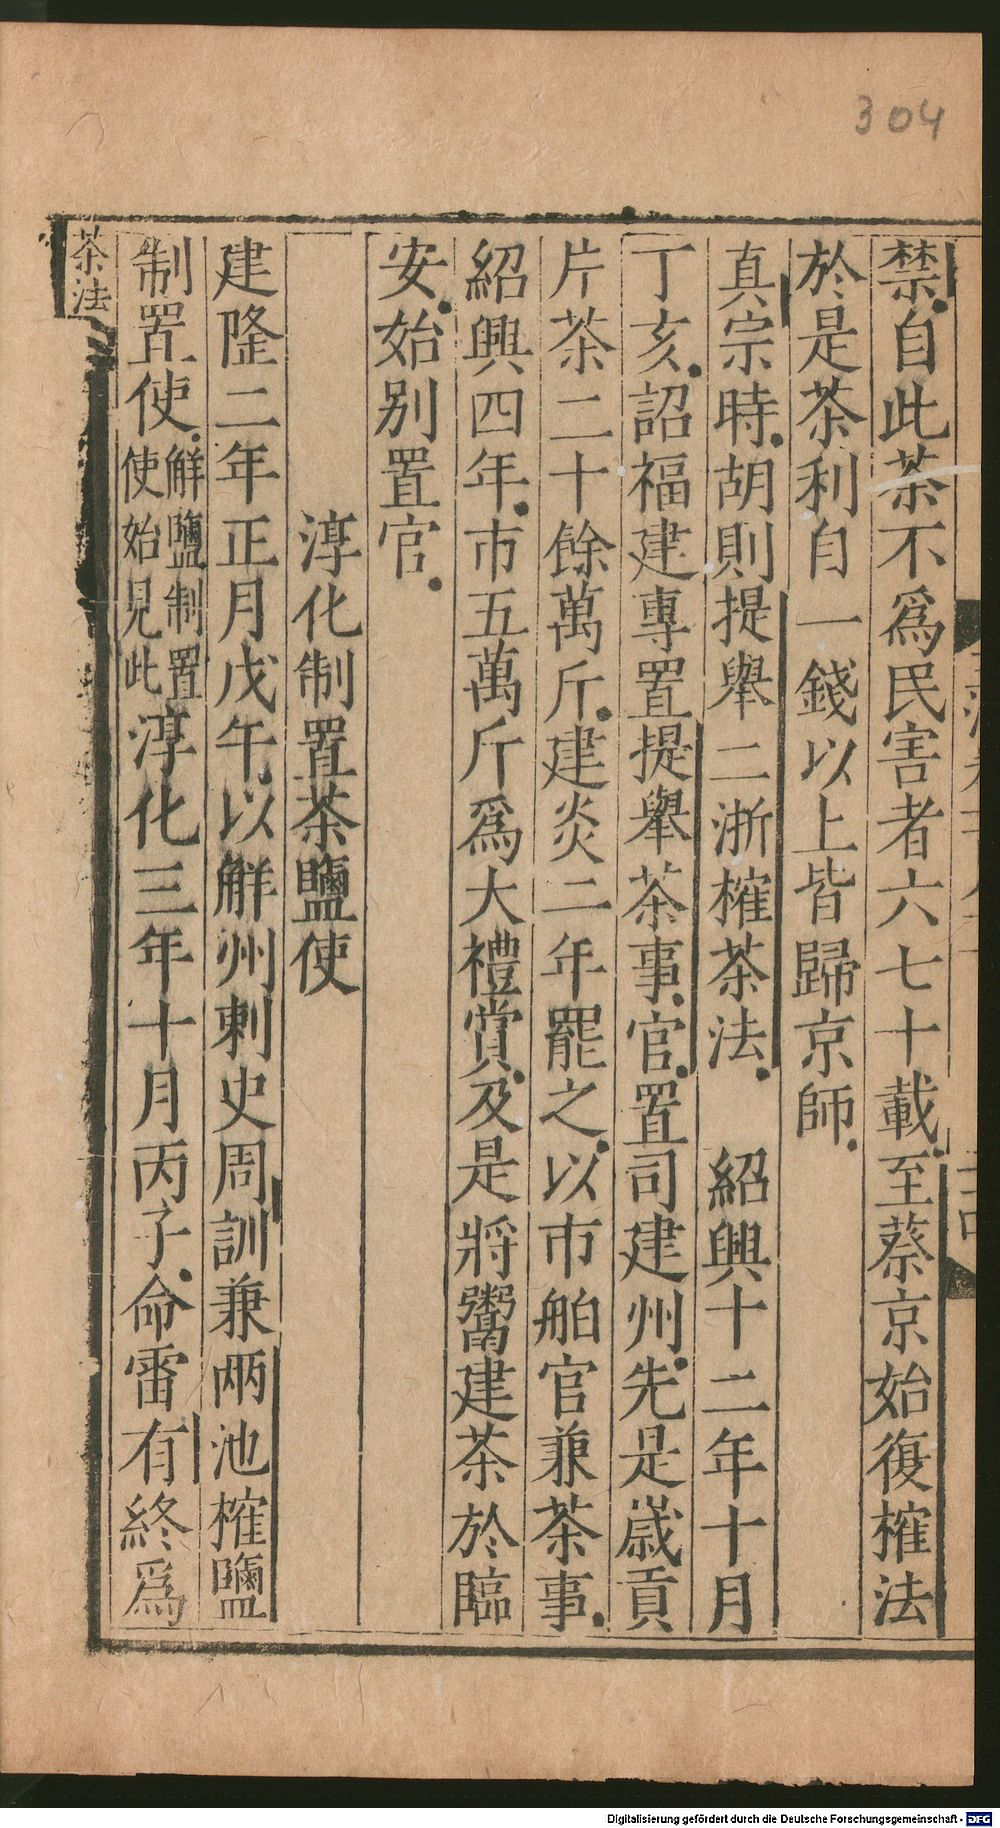 304
禁自此茶不爲民害者六七十載至蔡京始復榷法
於是茶利自一錢以上皆歸京師
真宗時胡則提舉二浙榷茶法　紹興十二年十月
丁亥詔福建專置提舉茶事官置司建州先是歲貢
片茶二十餘萬斤建炎二年罷之以市舶官兼茶事
紹興四年市五萬斤爲大禮賞及是將鬻建茶於臨
安始别置官
淳化制置茶鹽使
建隆二年正月戊午以解州刺史周訓兼兩池榷鹽
制置使解鹽制置使始見此淳化三年十月丙子命雷有終爲
茶法
Digitalisierung gefördert durch die Deutsche Forschungsgemeinschaft - DFG